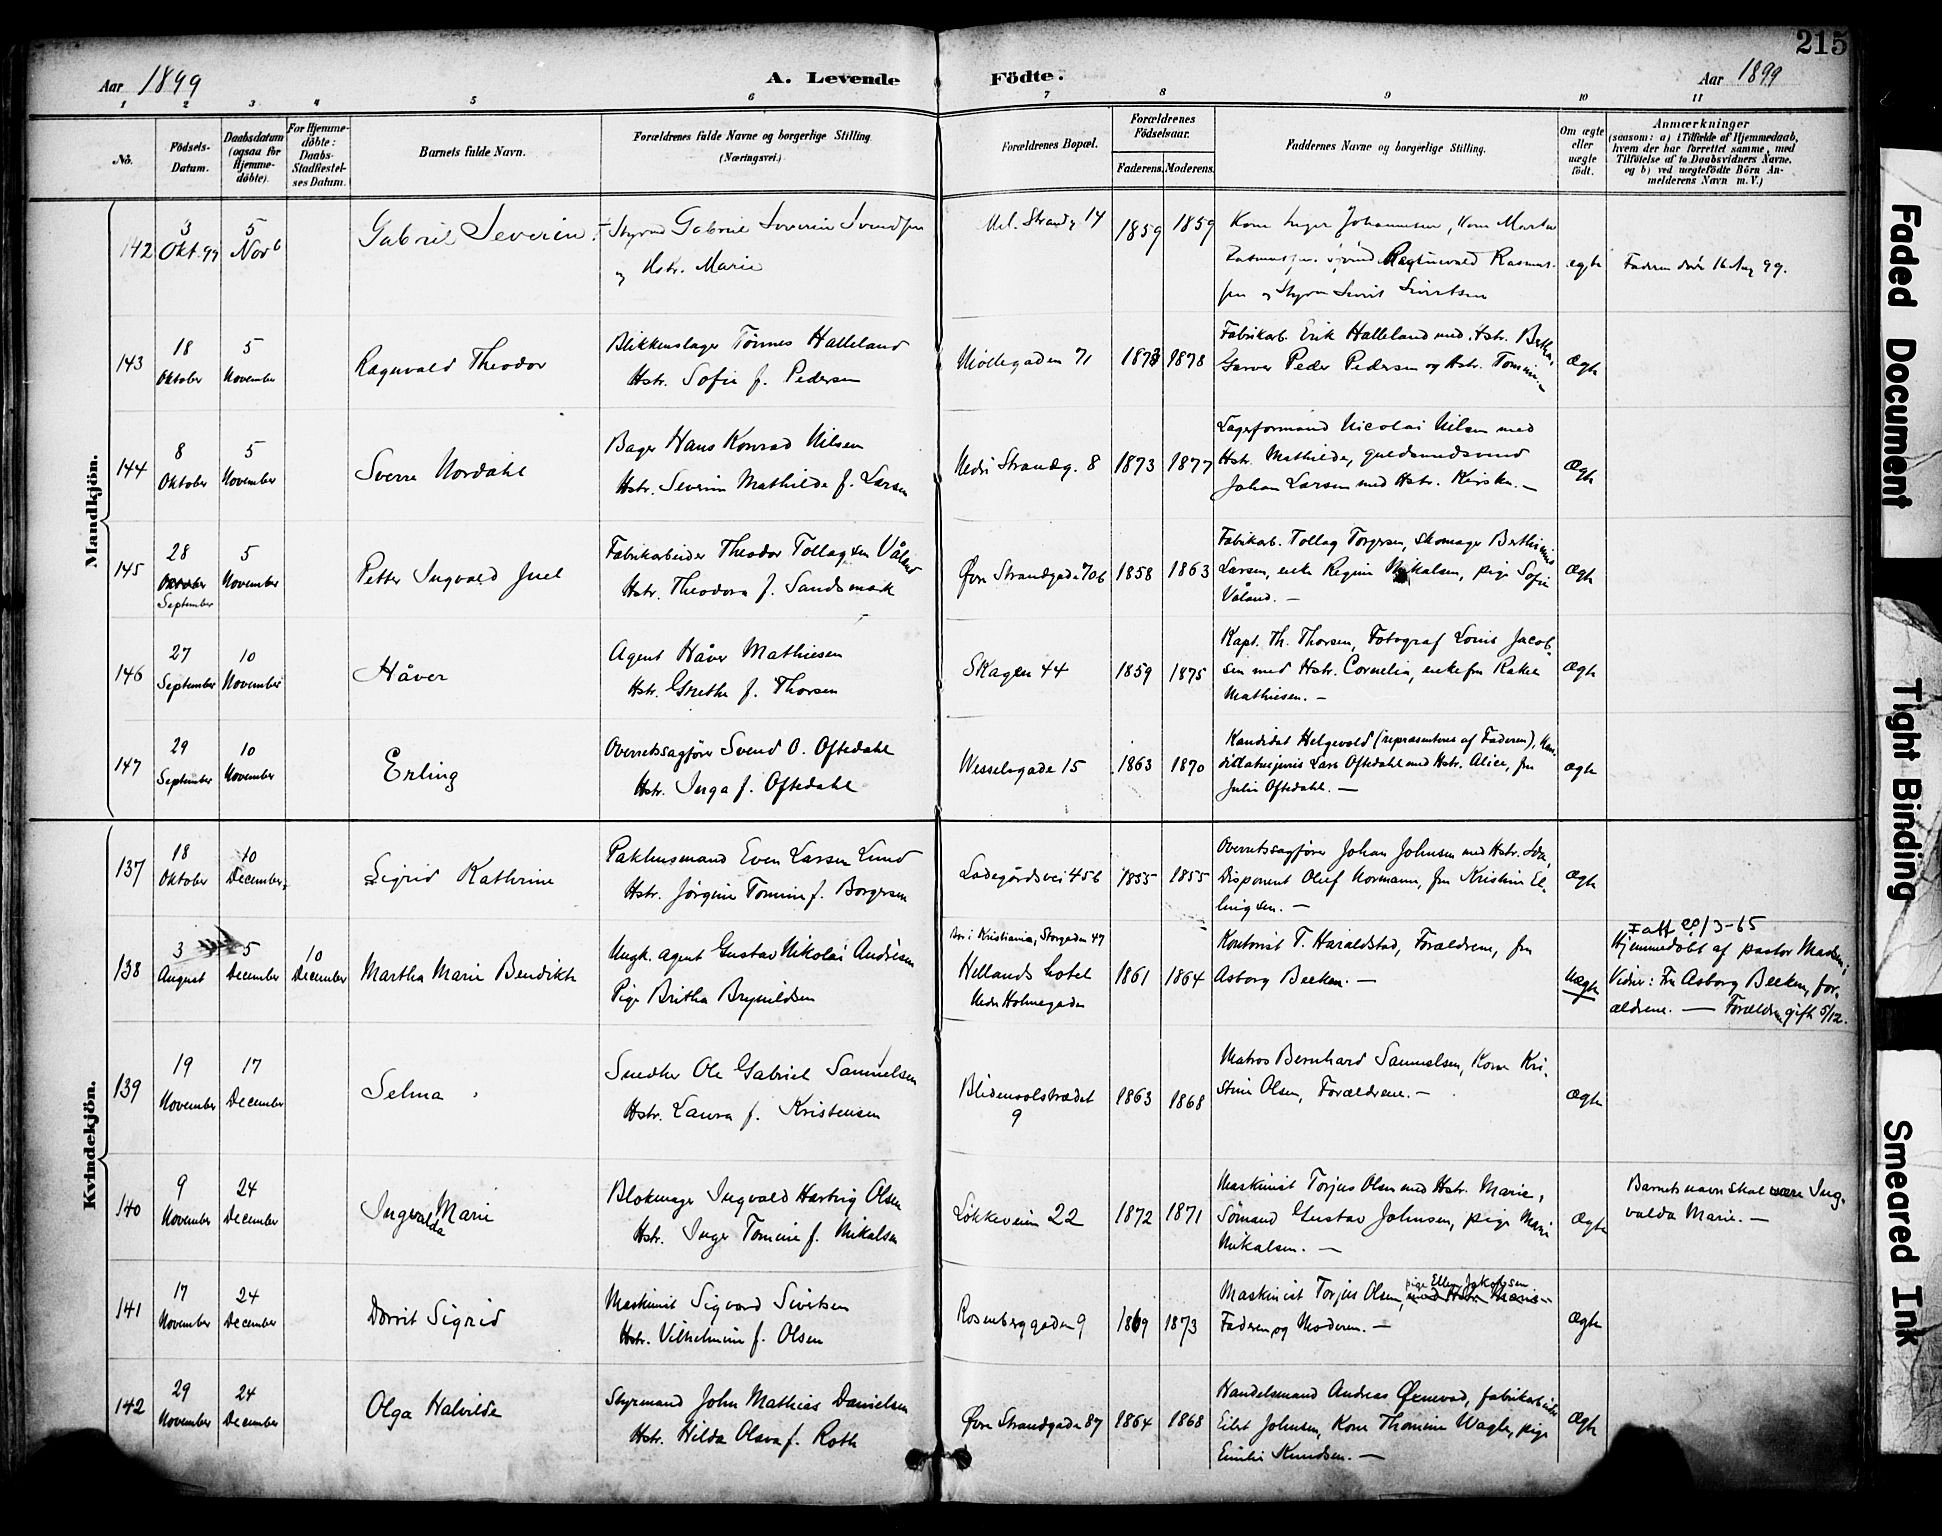 215
Aar 1899
A. Levende Födte.
Aar 1899
1 2 3 4 5 6 7 8 9 10 11
No.
Födsels-
Datum.
Daabsdatum
(ogsaa for
Hjemme-
döbte).
For Hjemme-
döbte:
Daabs-
Stadfæstel-
ses Datum.
Barnets fulde Navn.
Forældrenes fulde Navne og borgerlige Stilling.
(Næringsvei.)
Forældrenes Bopæl.
Forældrenes
Födselsaar.
Faderens. Moderens.
Faddernes Navne og borgerlige Stilling.
Om ægte
eller
uægte
födt.
Anmærkninger
(saasom: a) i Tilfælde af Hjemmedaab,
hvem der har forrettet samme, med
Tilföielse af to Daabsvidners Navne,
og b) ved uægtefödte Börn An-
melderens Navn m. V.)
Mandkjön.
142
3
Okt. 99
5
Novb
Gabriel Severin
Styrmd Gabriel Severin Svendsen
og Hstr. Marie
Strandg 14
1859
1859
Kone Inger Johannesen, Kone Martha
Ragnvald Rasmus-
sen og Styrm Sivert Sivertsen
ægte
Faderen död 16 Aug 99.
143
18
Oktober
5
November
Ragnvald Theodor
Blikkenslager Tönnes Halleland
Hstr. Sofie f. Pedersen
Möllegaden 71
1873
1878
Fabrikarb. Erik Halleland med Hstr. Berta,
Garver Peder Pedersen og Hstr. Tomine. —
Ægte
144
8
Oktober
5
November
Sverre Nordahl
Bager Hans Konrad Nilsen
Hstr. Severine Mathilde f. Larsen
Nedre Strandg. 8
1873
1877
Lagerformand Nicolai Nilsen med
Hstr. Mathilde, guldsmedsvend
Johan Larsen med Hstr. Kirsten. —
Ægte
145
28
Oktober
September
5
November
Petter Ingvald Juel
Fabrikarbeider Theodor Tollagsen Våland
Hstr. Theodora f. Sandsmark
Øvre Strandgade 70b
1858
1863
Fabrikarb. Tollag Torgersen, Skomager Berthinius
Larsen, enke Regine Mikalsen, pige Sofie
Våland. —
Ægte
146
27
September
10
November
Håver
Agent Håver Mathiesen
Hstr. Grethe f. Thorsen
Skagen 44
1859
1875
Kapt. Th. Thorsen, Fotograf Louis Jacob-
sen med Hstr. Cornelia, enkefru Rakel
Mathiesen. —
Ægte
147
29
September
10
November
Erling
Overretssagförer Svend O. Oftedahl
Hstr. Inga f. Oftedahl
Wesselsgade 15
1863
1870
Kandidat Helgevold (repræsenteres af Faderen), Kan-
didatus juris Lars Oftedahl med Hstr. Alice, fru
Julie Oftedahl. —
Ægte
Kvindekjön.
137
18
Oktober
10
December
Sigrid Kathrine
Pakhusmand Even Larsen Lund
Hstr. Jörgine Tomine f. Borgersen
Ladegårdsvei 45b
1855
1855
Overretssagförer Johan Johnsen med Hstr. Ida,
Disponent Oluf Normann, fru Kristine El-
lingsen. —
Ægte
138
3
August
5
December
10
December
Martha Marie Bendikte
Ungk. agent Gustav Nikolai Andresen
Pige Britha Brynildsen
bor i Kristiania, Storgaden 47
Hellands hotel
Nedre Holmegaden
1861
1864
Kontorist T. Haraldstad, Forældrene, fru
Asborg Beeken. —
Uægte
Fatt 29/3-65
Hjemmedöbt af pastor Madsen;
Vidner: Fru Asborg Beeken, for-
ældrene. — Forældrene gift 5/12.
139
19
November
17
December
Selma
Snedker Ole Gabriel Samuelsen
Hstr. Laura f. Kristensen
Blidensolstrædet
9
1863
1868
Matros Bernhard Samuelsen, Kone Kri-
stine Olsen, Forældrene. —
Ægte
140
9
November
24
December
Ingvalda Marie
Blokmager Ingvald Hartvig Olsen
Hstr. Inger Tomine f. Mikalsen
Lökkeveien 22
1872
1871
Maskinist Torjus Olsen med Hstr. Marie,
Sömand Gustav Johnsen, pige Marie
Mikalsen. —
Ægte
Barnets navn skal være Ing-
valda Marie. —
141
17
November
24
December
Dorrit Sigrid
Maskinist Sigvard Sivertsen
Hstr. Vilhelmine f. Olsen
Rosenberggaden 9
1869
1873
pige Ellen Jakobsen
Maskinist Torjus Olsen, med Hstr. Marie
Faderen og Moderen. —
Ægte
142
29
November
24
December
Olga Halvilde
Styrmand John Mathias Danielsen
Hstr. Hilda Olava f. Roth
Øvre Strandgade 87
1864
1868
Handelsmand Andreas Øxnevad, fabrikarbeider
Eilet Johnsen, Kone Thomine Wagle, pige
Emilie Knudsen. —
Ægte
Faded Document
Tight Binding
Smeared Ink